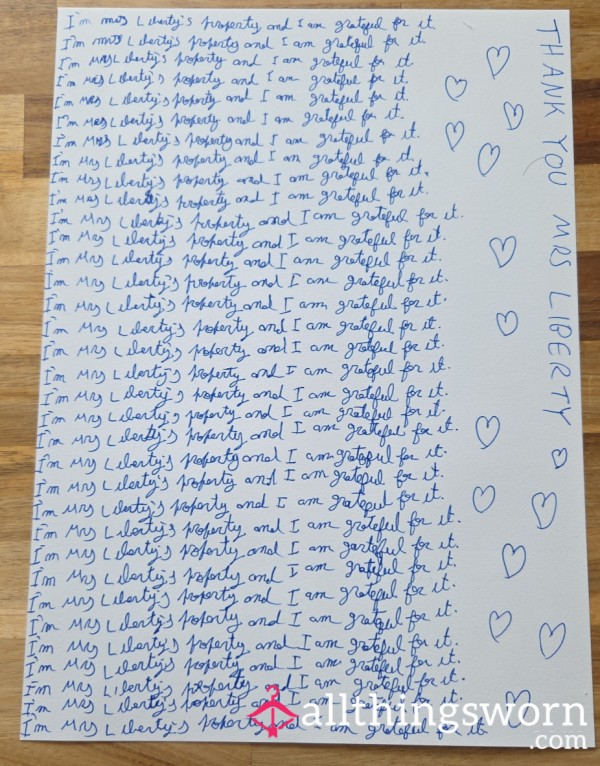 I'm mrs Liberty's property and I am grateful for it.
I'm mrs Liberty's property and I am grateful for it.
I'm Mrs Liberty's property and I am grateful for it.
I'm Mrs Liberty's property and I am grateful for it.
I'm Mrs Liberty's property and I am grateful for it.
I'm Mrs Liberty's property and I am grateful for it.
I'm Mrs Liberty's property and I am grateful for it.
I'm Mrs Liberty's property and I am grateful for it.
I'm Mrs Liberty's property and I am grateful for it.
I'm Mrs Liberty's property and I am grateful for it.
I'm Mrs Liberty's property and I am grateful for it.
I'm Mrs Liberty's property and I am grateful for it.
I'm Mrs Liberty's property and I am grateful for it.
I'm Mrs Liberty's property and I am grateful for it.
I'm Mrs Liberty's property and I am grateful for it.
I'm Mrs Liberty's property and I am grateful for it.
I'm Mrs Liberty's property and I am grateful for it.
I'm Mrs Liberty's property and I am grateful for it.
I'm Mrs Liberty's property and I am grateful for it.
I'm Mrs Liberty's property and I am grateful for it.
I'm Mrs Liberty's property and I am grateful for it.
I'm Mrs Liberty's property and I am grateful for it.
I'm Mrs Liberty's property and I am grateful for it.
I'm Mrs Liberty's property and I am grateful for it.
I'm Mrs Liberty's property and I am grateful for it.
I'm Mrs Liberty's property and I am garteful for it.
I'm Mrs Liberty's property and I am grateful for it.
I'm Mrs Liberty's property and I am grateful for it.
I'm Mrs Liberty's property and I am grateful for it.
I'm Mrs Liberty's property and I am grateful for it.
I'm Mrs Liberty's property and I am grateful for it.
I'm Mrs Liberty's property and I am grateful for it.
I'm Mrs Liberty's property and I am grateful for it.
I'm Mrs Liberty's property and I am grateful for it.
THANK YOU MRS LIBERTY
allthingsworn
.com